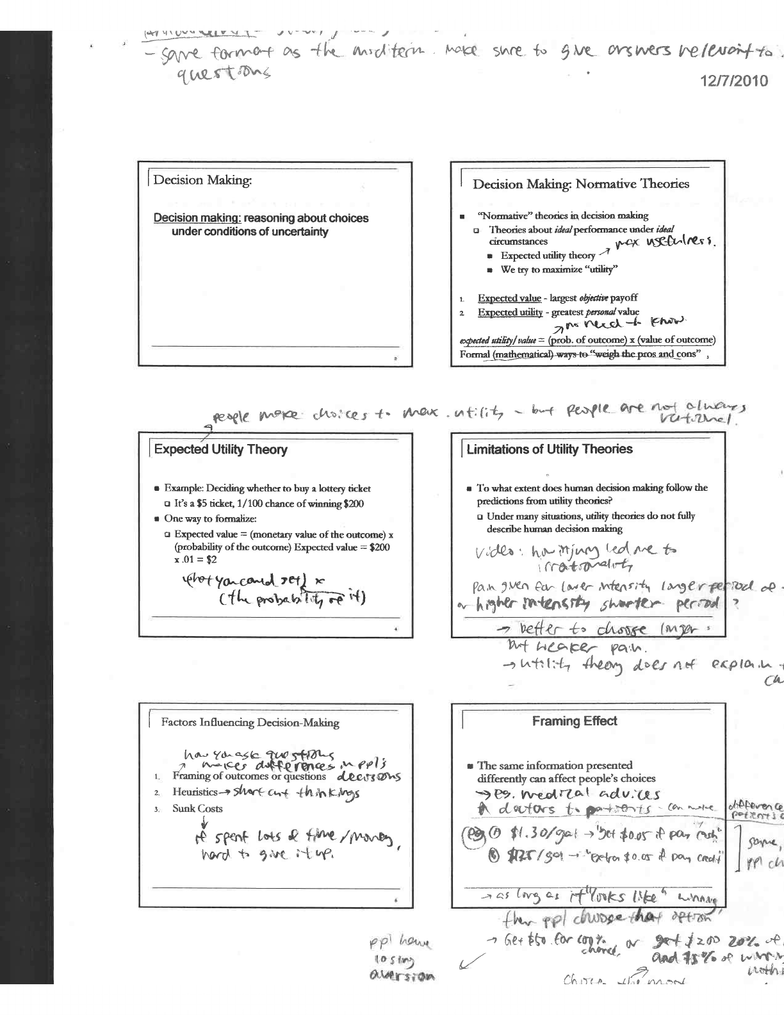 - same format as the midterm. Make sure to give answers relevant to
questions
12/7/2010
Decision Making:
Decision making: reasoning about choices
under conditions of uncertainty
Decision Making: Normative Theories
"Normative" theories in decision making
Theories about ideal performance under ideal
circumstances
max usefulness.
Expected utility theory
We try to maximize "utility"
1. Expected value - largest objective payoff
2. Expected utility - greatest personal value
need to know
expected utility/value = (prob. of outcome) x (value of outcome)
Formal (mathematical) ways to "weigh the pros and cons"
people make choices to max. utility - but people are not always
rational.
Expected Utility Theory
Example: Deciding whether to buy a lottery ticket
It's a $5 ticket, 1/100 chance of winning $200
One way to formalize:
Expected value = (monetary value of the outcome) x
(probability of the outcome) Expected value = $200
x .01 = $2
what you could get) x
(the probability of it)
Limitations of Utility Theories
To what extent does human decision making follow the
predictions from utility theories?
Under many situations, utility theories do not fully
describe human decision making
Video: how injury led me to
irrationality
Pain given for lower intensity longer period of
or higher intensity shorter period?
→ better to choose longer
but weaker pain.
→ utility theory does not explain
Factors Influencing Decision-Making
how you ask questions
makes differences in ppl's
1. Framing of outcomes or questions decisions
2. Heuristics → short cut thinkings
3. Sunk Costs
if spent lots of time/money,
hard to give it up.
Framing Effect
The same information presented
differently can affect people's choices
→ eg. medical advices
doctors to patients - can make difference
patients
(eg) ① $1.30/gal → "get $0.05 if pay cash"
② $1.25/gal → "extra $0.05 if pay credit"
same,
ppl
→ as long as it "looks like" winning
then ppl choose that option
→ Get $50 for 100% chance, or get $200 20% of
and 75% of winning
ppl have
losing
aversion